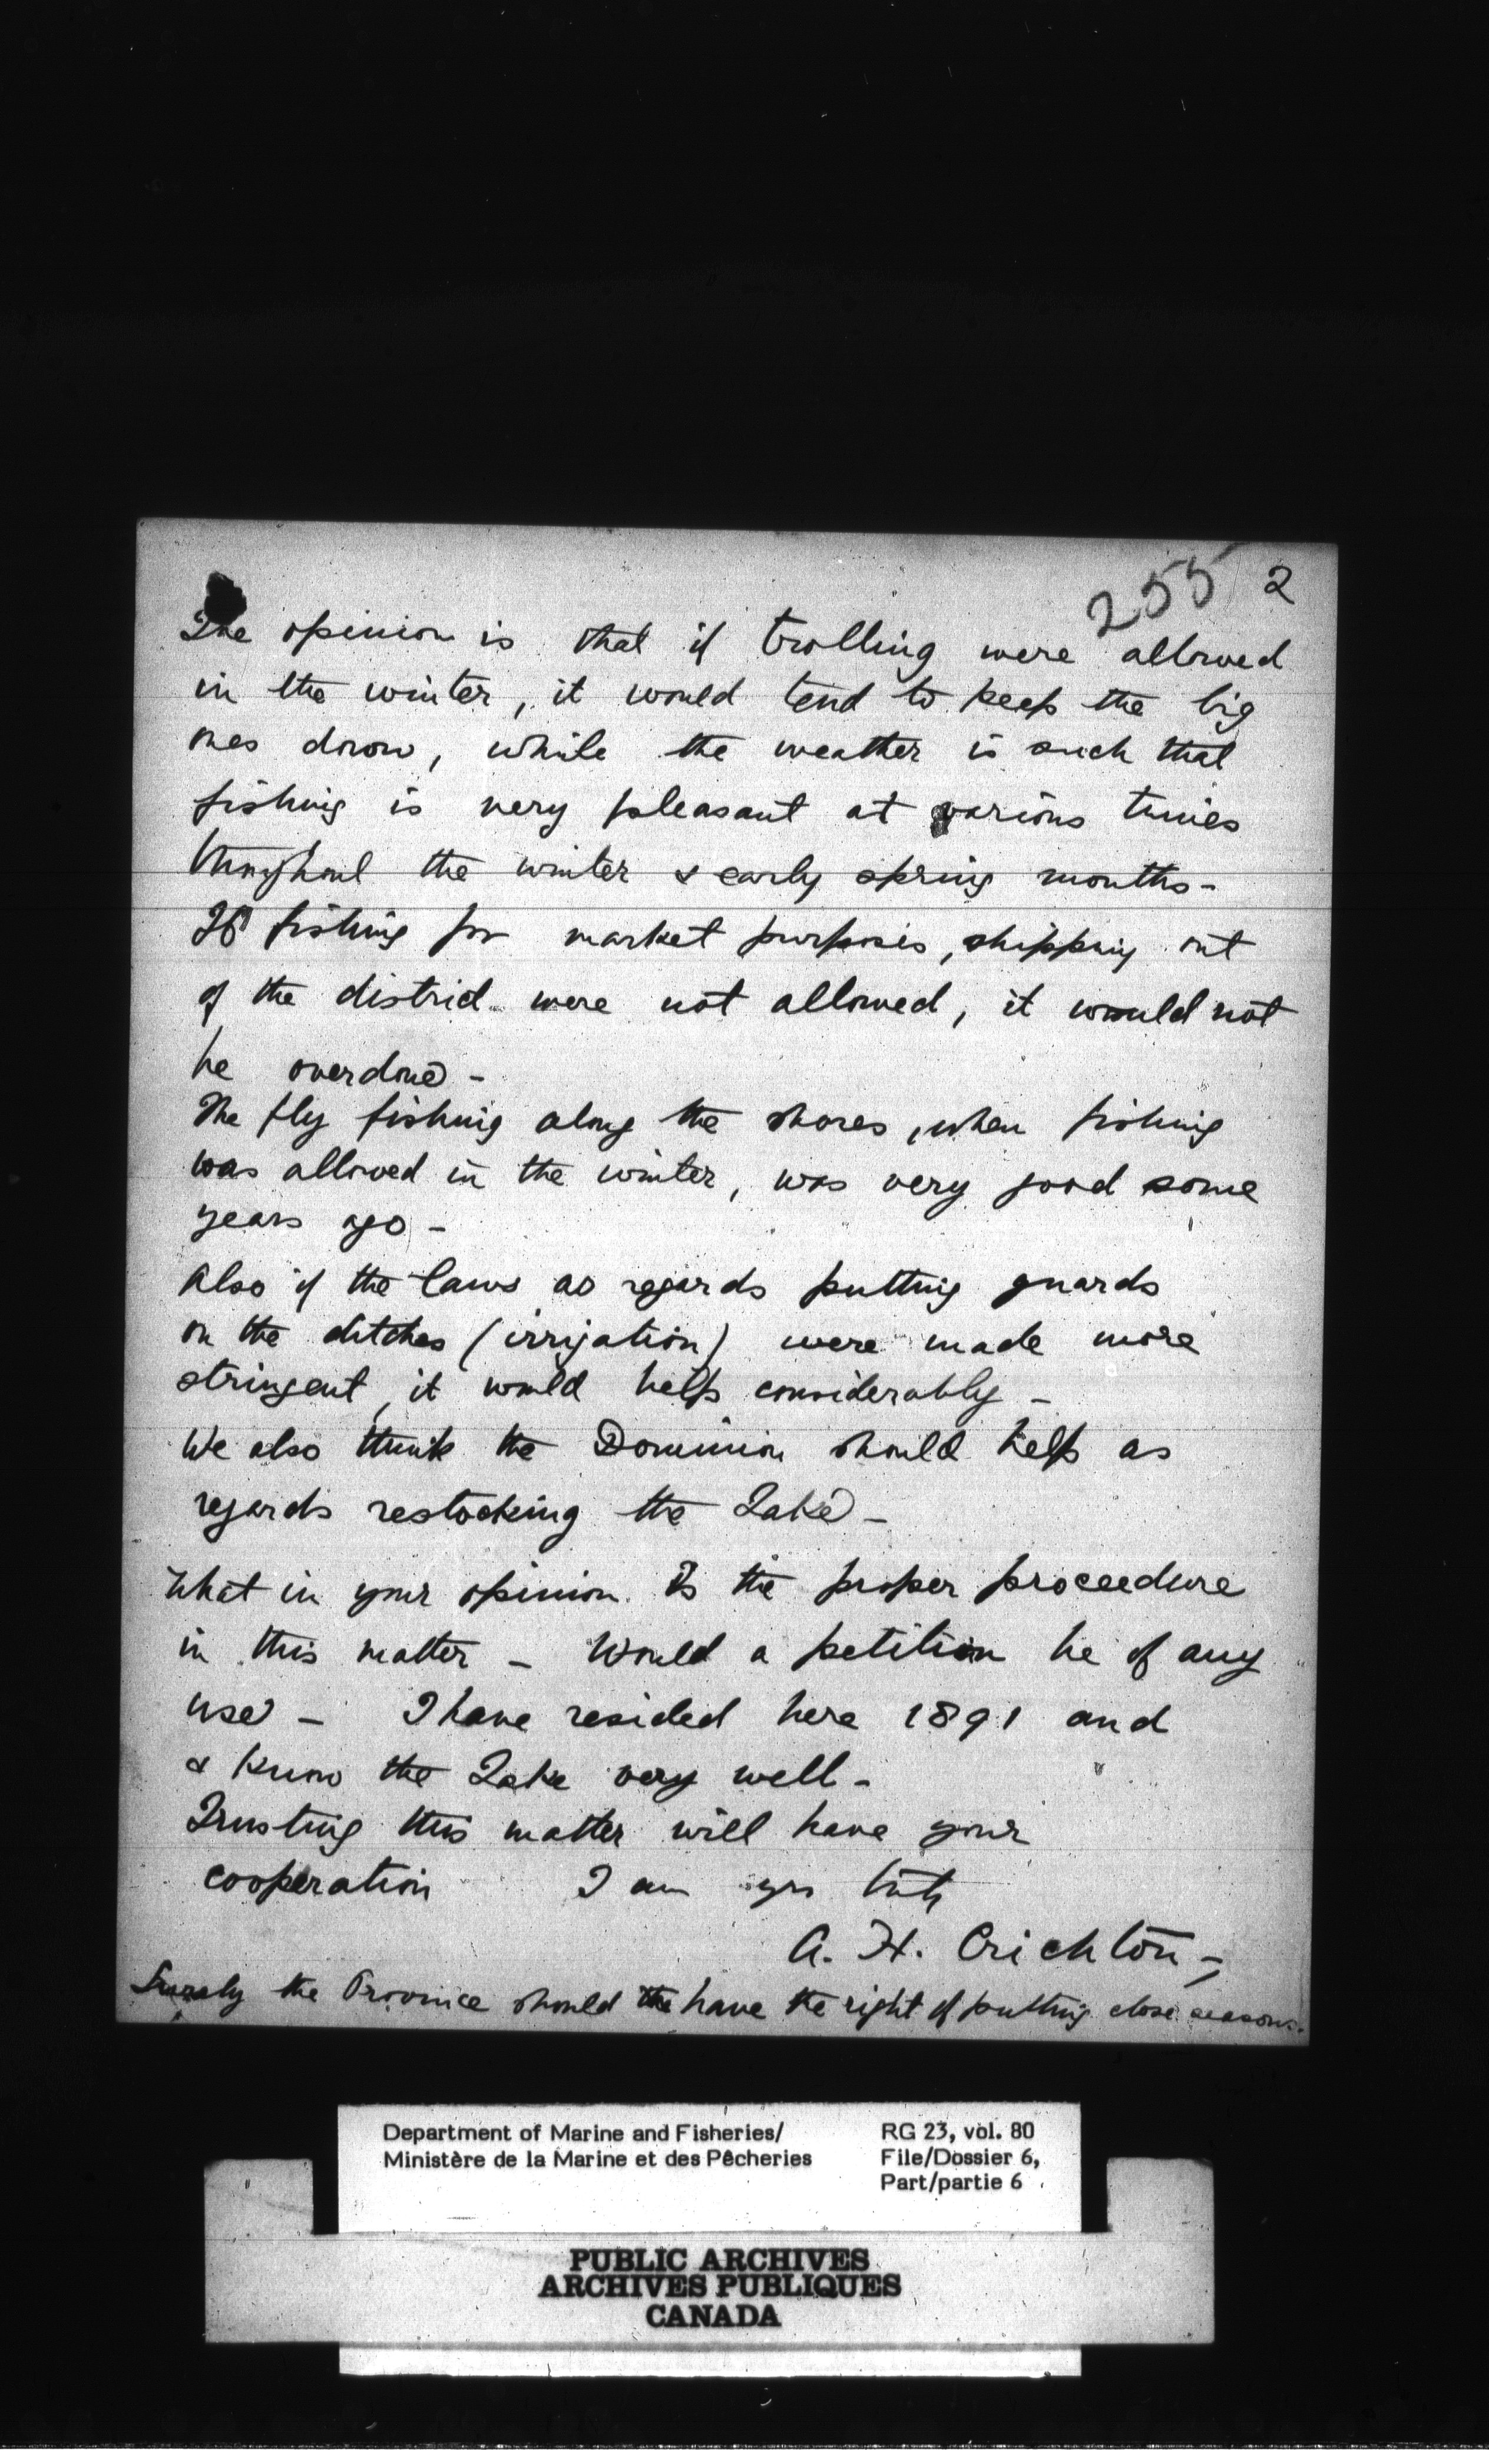 255 2
The opinion is that if trolling were allowed
in the winter, it would tend to keep the big
ones down, while the weather is such that
fishing is very pleasant at various times
throughout the winter & early spring months -
If fishing for market purposes, shipping out
of the district were not allowed, it would not
be overdone -
The fly fishing along the shores, when fishing
was allowed in the winter, was very good some
years ago -
Also if the laws as regards putting guards
on the ditches (irrigation) were made more
stringent, it would help considerably -
We also think the Dominion should help as
regards restocking the Lake -
What in your opinion is the proper proceedure
in this matter - Would a petition be of any
use - I have resided here 1891 and
& know the Lake very well -
Trusting this matter will have your
cooperation I am yrs truly
A. H. Crichton -
Surely the Province should the have the right of putting close seasons.
Department of Marine and Fisheries/ RG 23, vol. 80
Ministère de la Marine et des Pêcheries File/Dossier 6,
Part/partie 6
PUBLIC ARCHIVES
ARCHIVES PUBLIQUES
CANADA